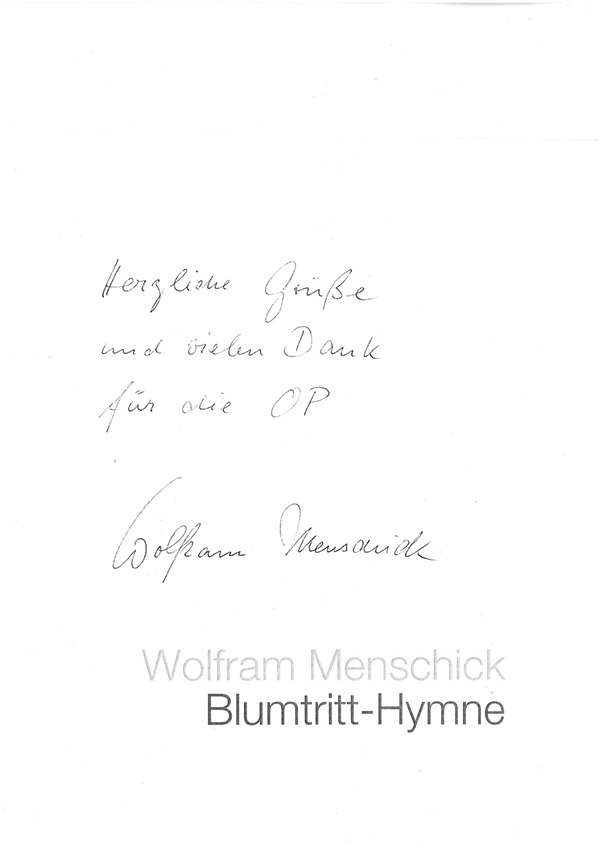 Herzliche Grüße
und vielen Dank
für die OP
Wolfram Menschick
Wolfram Menschick
Blumtritt-Hymne